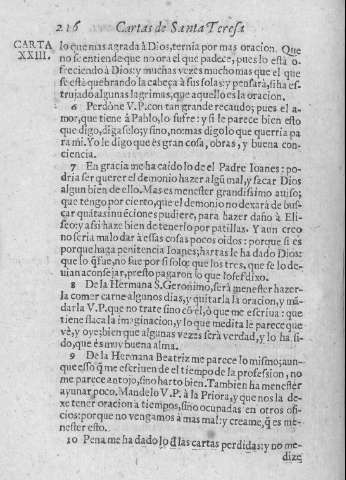 216 Cartas de Santa Teresa
CARTA
XXIII.
lo que mas agrada à Dios, ternia por mas oracion. Que
no se entiende que no ora el que padece, pues lo està o-
freciendo à Dios: y muchas vezes mucho mas que el que
se està quebrando la cabeça à sus solas, y pensarà, si ha es-
trujado algunas lagrimas, que aquello es la oracion.
6 Perdone V.P. con tan grande recaudo; pues el a-
mor, que tiene à Pablo, lo sufre: y si le parece bien esto
que digo, digaselo; y sino, no: mas digo lo que querria pa
ra mi. Yo le digo que es gran cosa, obras, y buena con-
ciencia.
7 En gracia me ha caído lo de el Padre Ioanes: po-
dria ser querer el demonio hazer algũ mal, y sacar Dios
algun bien de ello. Mas es menester grandissimo auiso;
que tengo por cierto, que el demonio no dexarà de bus-
car quãtas inuẽciones pudiere, para hazer daño à Eli-
seo: y assi haze bien de tenerlo por patillas. Y aun creo
no seria malo dar à essas cosas pocos oidos: porque si es
porque haga penitencia Ioanes, hartas le ha dado Dios:
que lo q̃ fue, no fue por si solo: que los tres, que se lo de-
uian aconsejar, presto pagaron lo que Iosef dixo.
8 De la Hermana S. Geronimo, serà menester hazer-
la comer carne algunos dias, y quitarla la oracion, y mã-
darla V.P. que no trate sino cõ el, ò que me escriua: que
tiene flaca la imaginacion, y lo que medita le parece que
vè, y oye; bien que algunas vezes serà verdad, y lo ha si-
do, que es muy buena alma.
9 De la Hermana Beatriz me parece lo mismo; aun-
que esso q̃ me escriuen de el tiempo de la profession, no
me parece antojo, sino harto bien. Tambien ha menester
ayunar poco. Mandelo V.P. à la Priora, y que nos la de-
xe tener oracion à tiempos, sino ocupadas en otros ofi-
cios: porque no vengamos à mas mal: y creame, q̃ es me-
nester esto.
10 Pena me ha dado lo d̃ las cartas perdidas: y no me-
dize